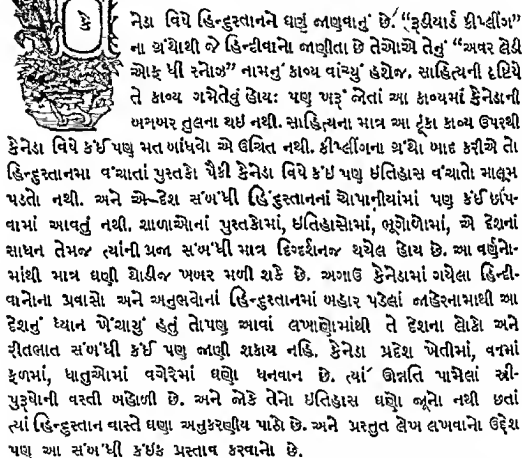 કેનેડા વિષે હિન્દુસ્તાનને ઘણું જાણવાનું છે. “રૂડીયાર્ડ કીપ્લીંગ”
ના ગ્રંથોથી જે હિન્દીવાનો જાણીતા છે તેઓએ તેનું “અવર લેડી
ઓફ ધી સ્નોઝ” નામનું કાવ્ય વાંચ્યું હશેજ. સાહિત્યની દૃષ્ટિયે
તે કાવ્ય ગમેતેવું હોય: પણ ખરૂં જોતાં આ કાવ્યમાં કેનેડાની
બરાબર તુલના થઇ નથી. સાહિત્યના માત્ર આ ટૂંકા કાવ્ય ઉપરથી
કેનેડા વિષે કંઈ પણ મત બાંધવો એ ઉચિત નથી. કીપ્લીંગના ગ્રંથો બાદ કરીએ તો
હિન્દુસ્તાનમાં વંચાતાં પુસ્તકો પૈકી કેનેડા વિષે કંઇ પણ ઇતિહાસ વંચાતો માલૂમ
પડતો નથી. અને એ–દેશ સંબંધી હિંદુસ્તાનનાં ચોપાનીયાંમાં પણ કંઈ છાપ-
વામાં આવતું નથી. શાળાઓનાં પુસ્તકોમાં, ઇતિહાસોમાં, ભૂગોળોમાં, એ દેશનાં
સાધન તેમજ ત્યાંની પ્રજા સંબંધી માત્ર દિગ્દર્શનજ થયેલ હોય છે. આ વર્ણનો-
માંથી માત્ર ઘણી થોડીજ ખબર મળી શકે છે. અગાઉ કેનેડામાં ગયેલા હિન્દી-
વાનોના પ્રવાસો અને અનુભવોનાં હિન્દુસ્તાનમાં બહાર પડેલાં જાહેરનામાથી આ
દેશનું ધ્યાન ખેંચાયું હતું તોપણ આવાં લખાણોમાંથી તે દેશના લોકો અને
રીતભાત સંબંધી કંઈ પણ જાણી શકાય નહિ. કેનેડા પ્રદેશ ખેતીમાં, વનમાં
ફળમાં, ધાતુઓમાં વગેરેમાં ઘણો ધનવાન છે. ત્યાં ઉન્નતિ પામેલાં સ્ત્રી-
પુરૂષોની વસ્તી બહોળી છે. અને જોકે તેનો ઇતિહાસ ઘણો જૂનો નથી છતાં
ત્યાં હિન્દુસ્તાન વાસ્તે ઘણા અનુકરણીય પાઠો છે. અને પ્રસ્તુત લેખ લખવાનો ઉદ્દેશ
પણ આ સંબંધી કંઇક પ્રસ્તાવ કરવાનો છે.